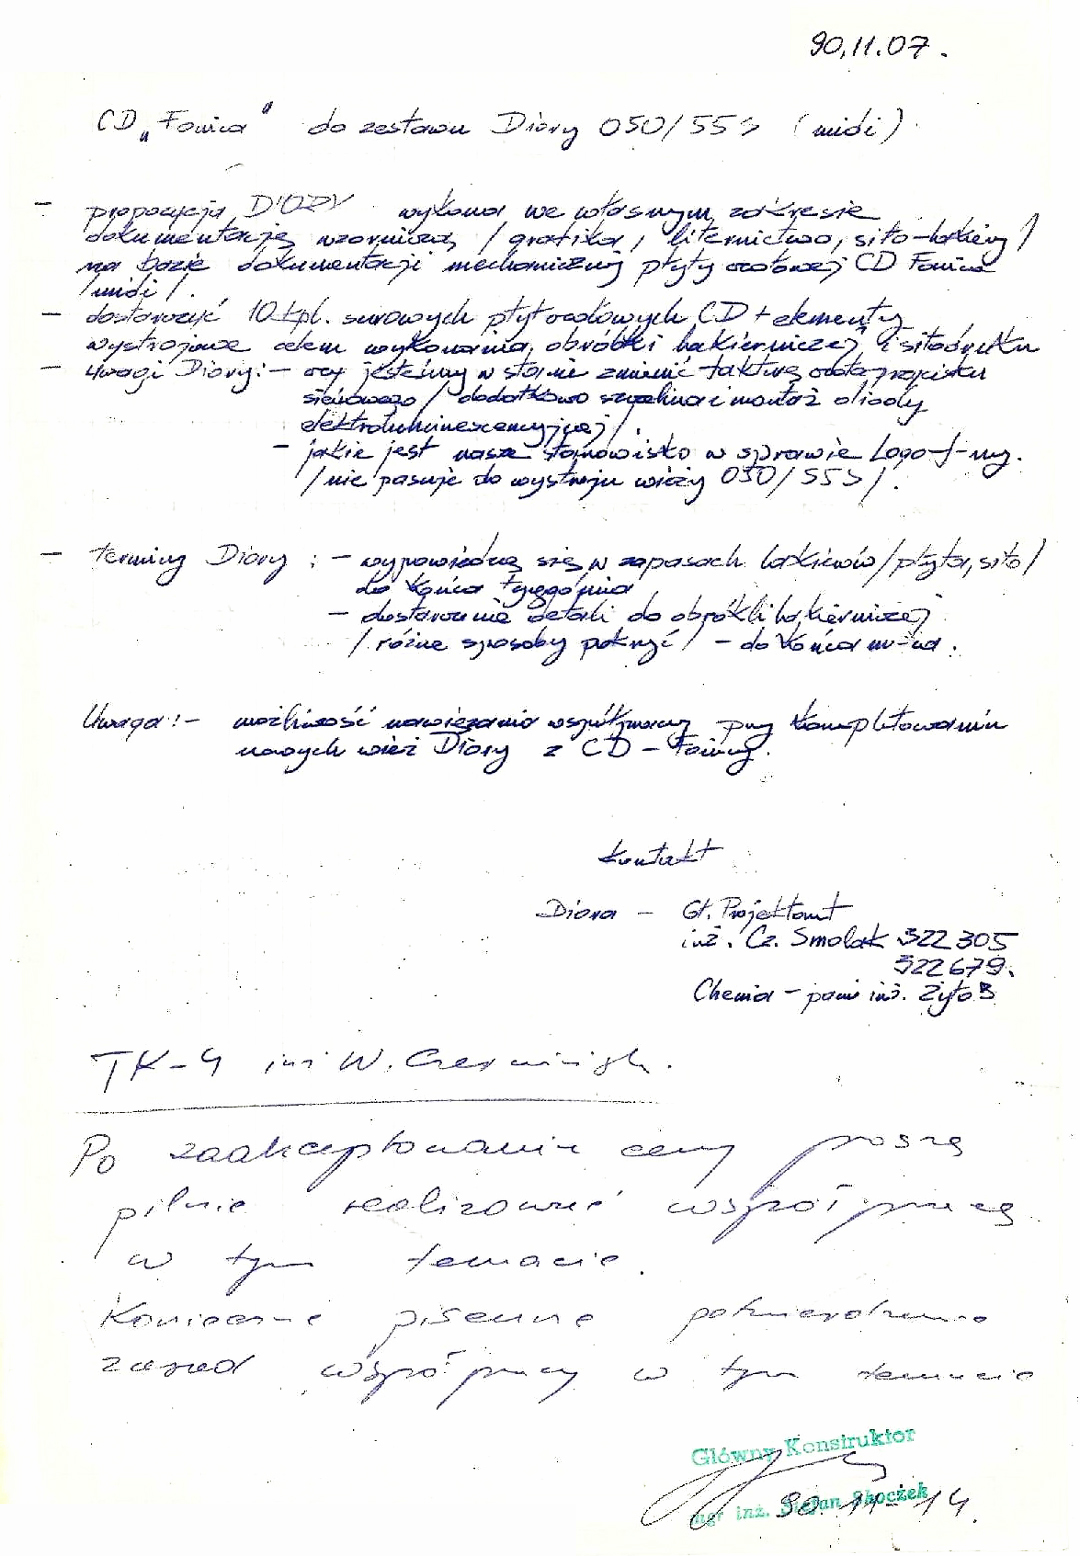 90.11.07.
CD „Fonica" do zestawu Diory 050/55S (midi).
— propozycja DIORY wykona we własnym zakresie
dokumentację wzorniczą / grafika, liternictwo, sito-lakiery /
na bazie dokumentacji mechanicznej płyty czołowej CD Fonica
/midi/.
— dostarczyć 10 kpl. surowych płyt czołowych CD + elementy
wystrojowe celem wykonania obróbki lakierniczej i sitodruku
— Uwagi Diory: — czy jesteśmy w stanie zmienić fakturę przycisku
sieciowego / dodatkowo szczelina i montaż diody
elektroluminescencyjnej /.
— jakie jest nasze stanowisko w sprawie Logo f-my.
/ nie pasuje do wystroju wieży 050/55S /.
— terminy Diory : — wypowiedzą się w zapasach lakierów /płyta, sito/
do końca tygodnia
— dostarczenie detali do obróbki lakierniczej
/ różne sposoby pokryć / — do końca m-ca.
Uwaga: — możliwość nawiązania współpracy przy kompletowaniu
nowych wież Diory z CD — Fonicy.
Kontakt
Diora — Gł. Projektant
inż. Cz. Smolak 322 305
322 679.
Chemia — pani inż. Zyto
TK-4 inż W.
Po zaakceptowaniu ceny proszę
pilnie realizować współpracę
w tym temacie.
Konieczne pisemne potwierdzenie
zasad współpracy w tym temacie
Główny Konstruktor
mgr inż. Stefan Skoczek
90-11-14.